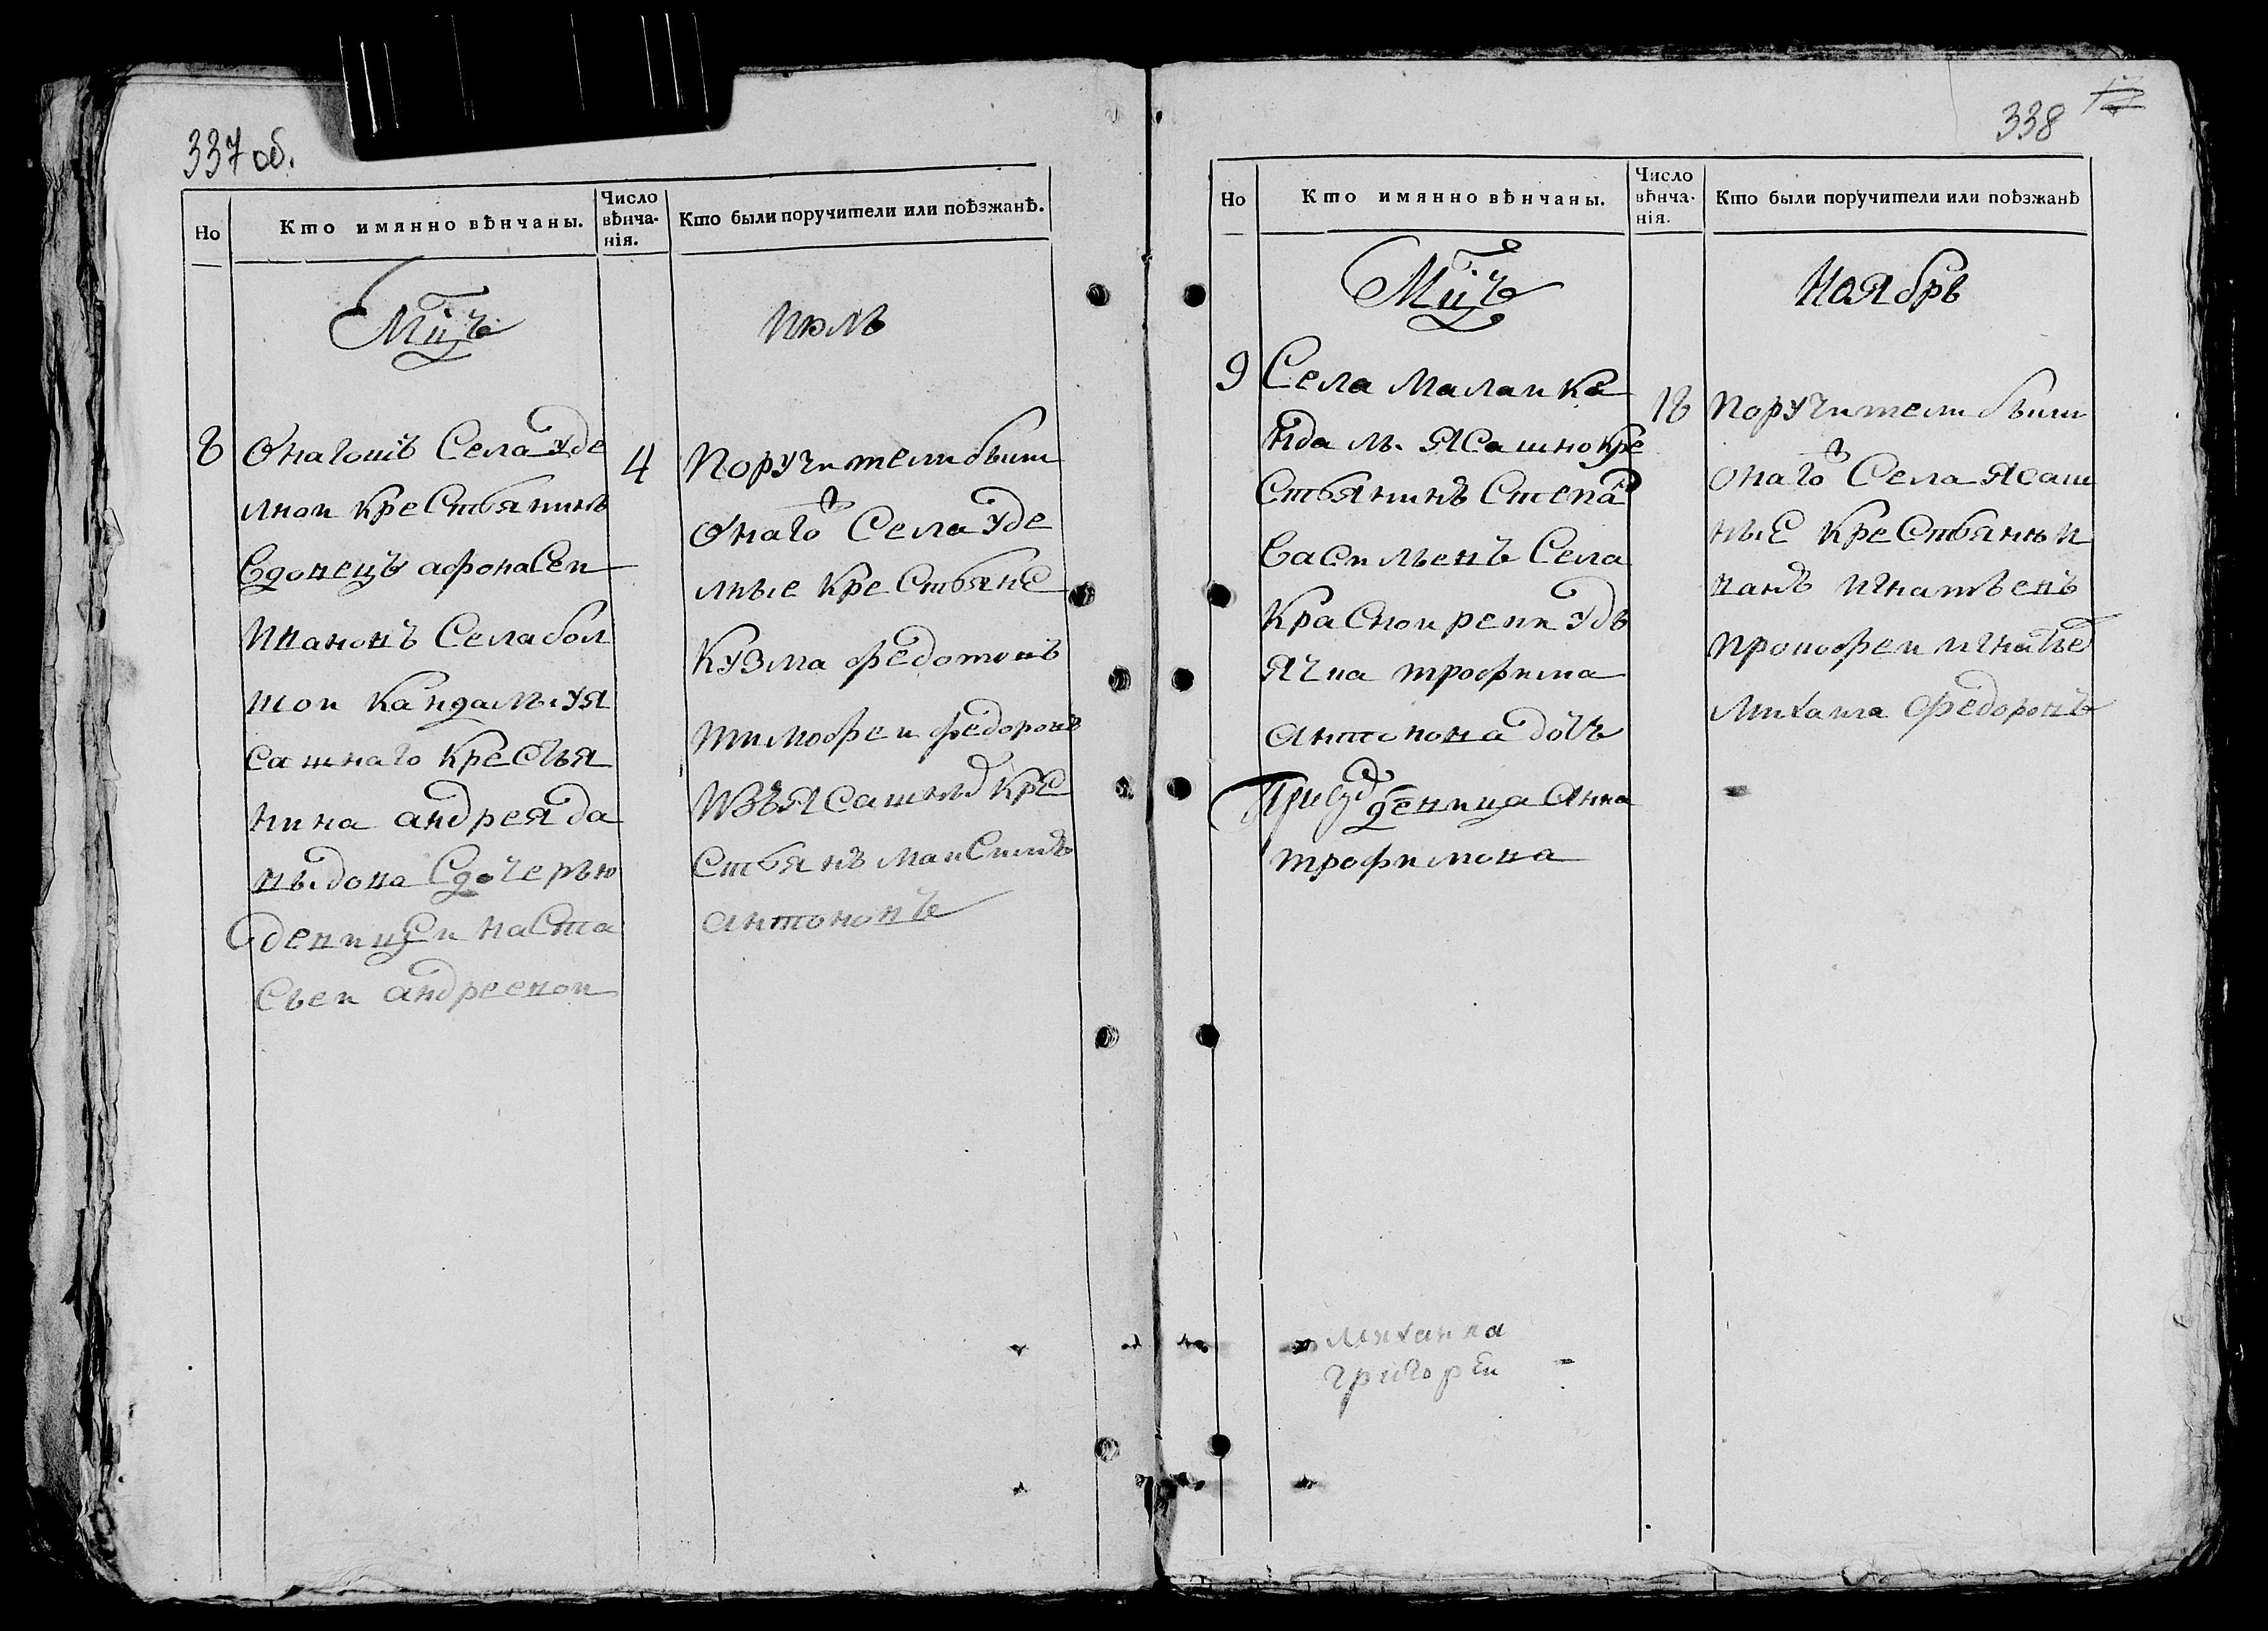 337 об.
Но
Кто имянно вѣнчаны.
Число вѣнча-нія.
Кто были поручители или поѣзжанѣ.
Мцъ
Июль
8
Онагошъ Села Уде
лнои креСтьянинъ
Вдовецъ афонасеи
Ивановъ Села бол
шои Кандалы уя
сашнаго кресть я
нина андрея да
выдова Сдочерью
девицеи наСта
Сьеи андреевои
4
Поручители были
Онаго Села Уде
лные КреСтьяне
Кузма федотовъ
тимофеи федоровъ
изъ Ясашныхъ Кре
Стьянъ макСимъ
антоновъ
338
Но
Кто имянно вѣнчаны.
Число вѣнча-нія.
Кто были поручители или поѣзжанѣ
Мцъ
Ноябрь
9
Села Малаи Ка
ндалы Ясашнои кре
Стьянинъ Степа
ВаСильевъ Села
КраСнои реки
трофима
антонова дочь
девица Анна
трофимова
18
Поручители были
Онаго Села Ясаш
ные креСтьяны и
ванъ игнатьевъ
прокофеи игнатье
михаила федоровъ
михаила
григореи